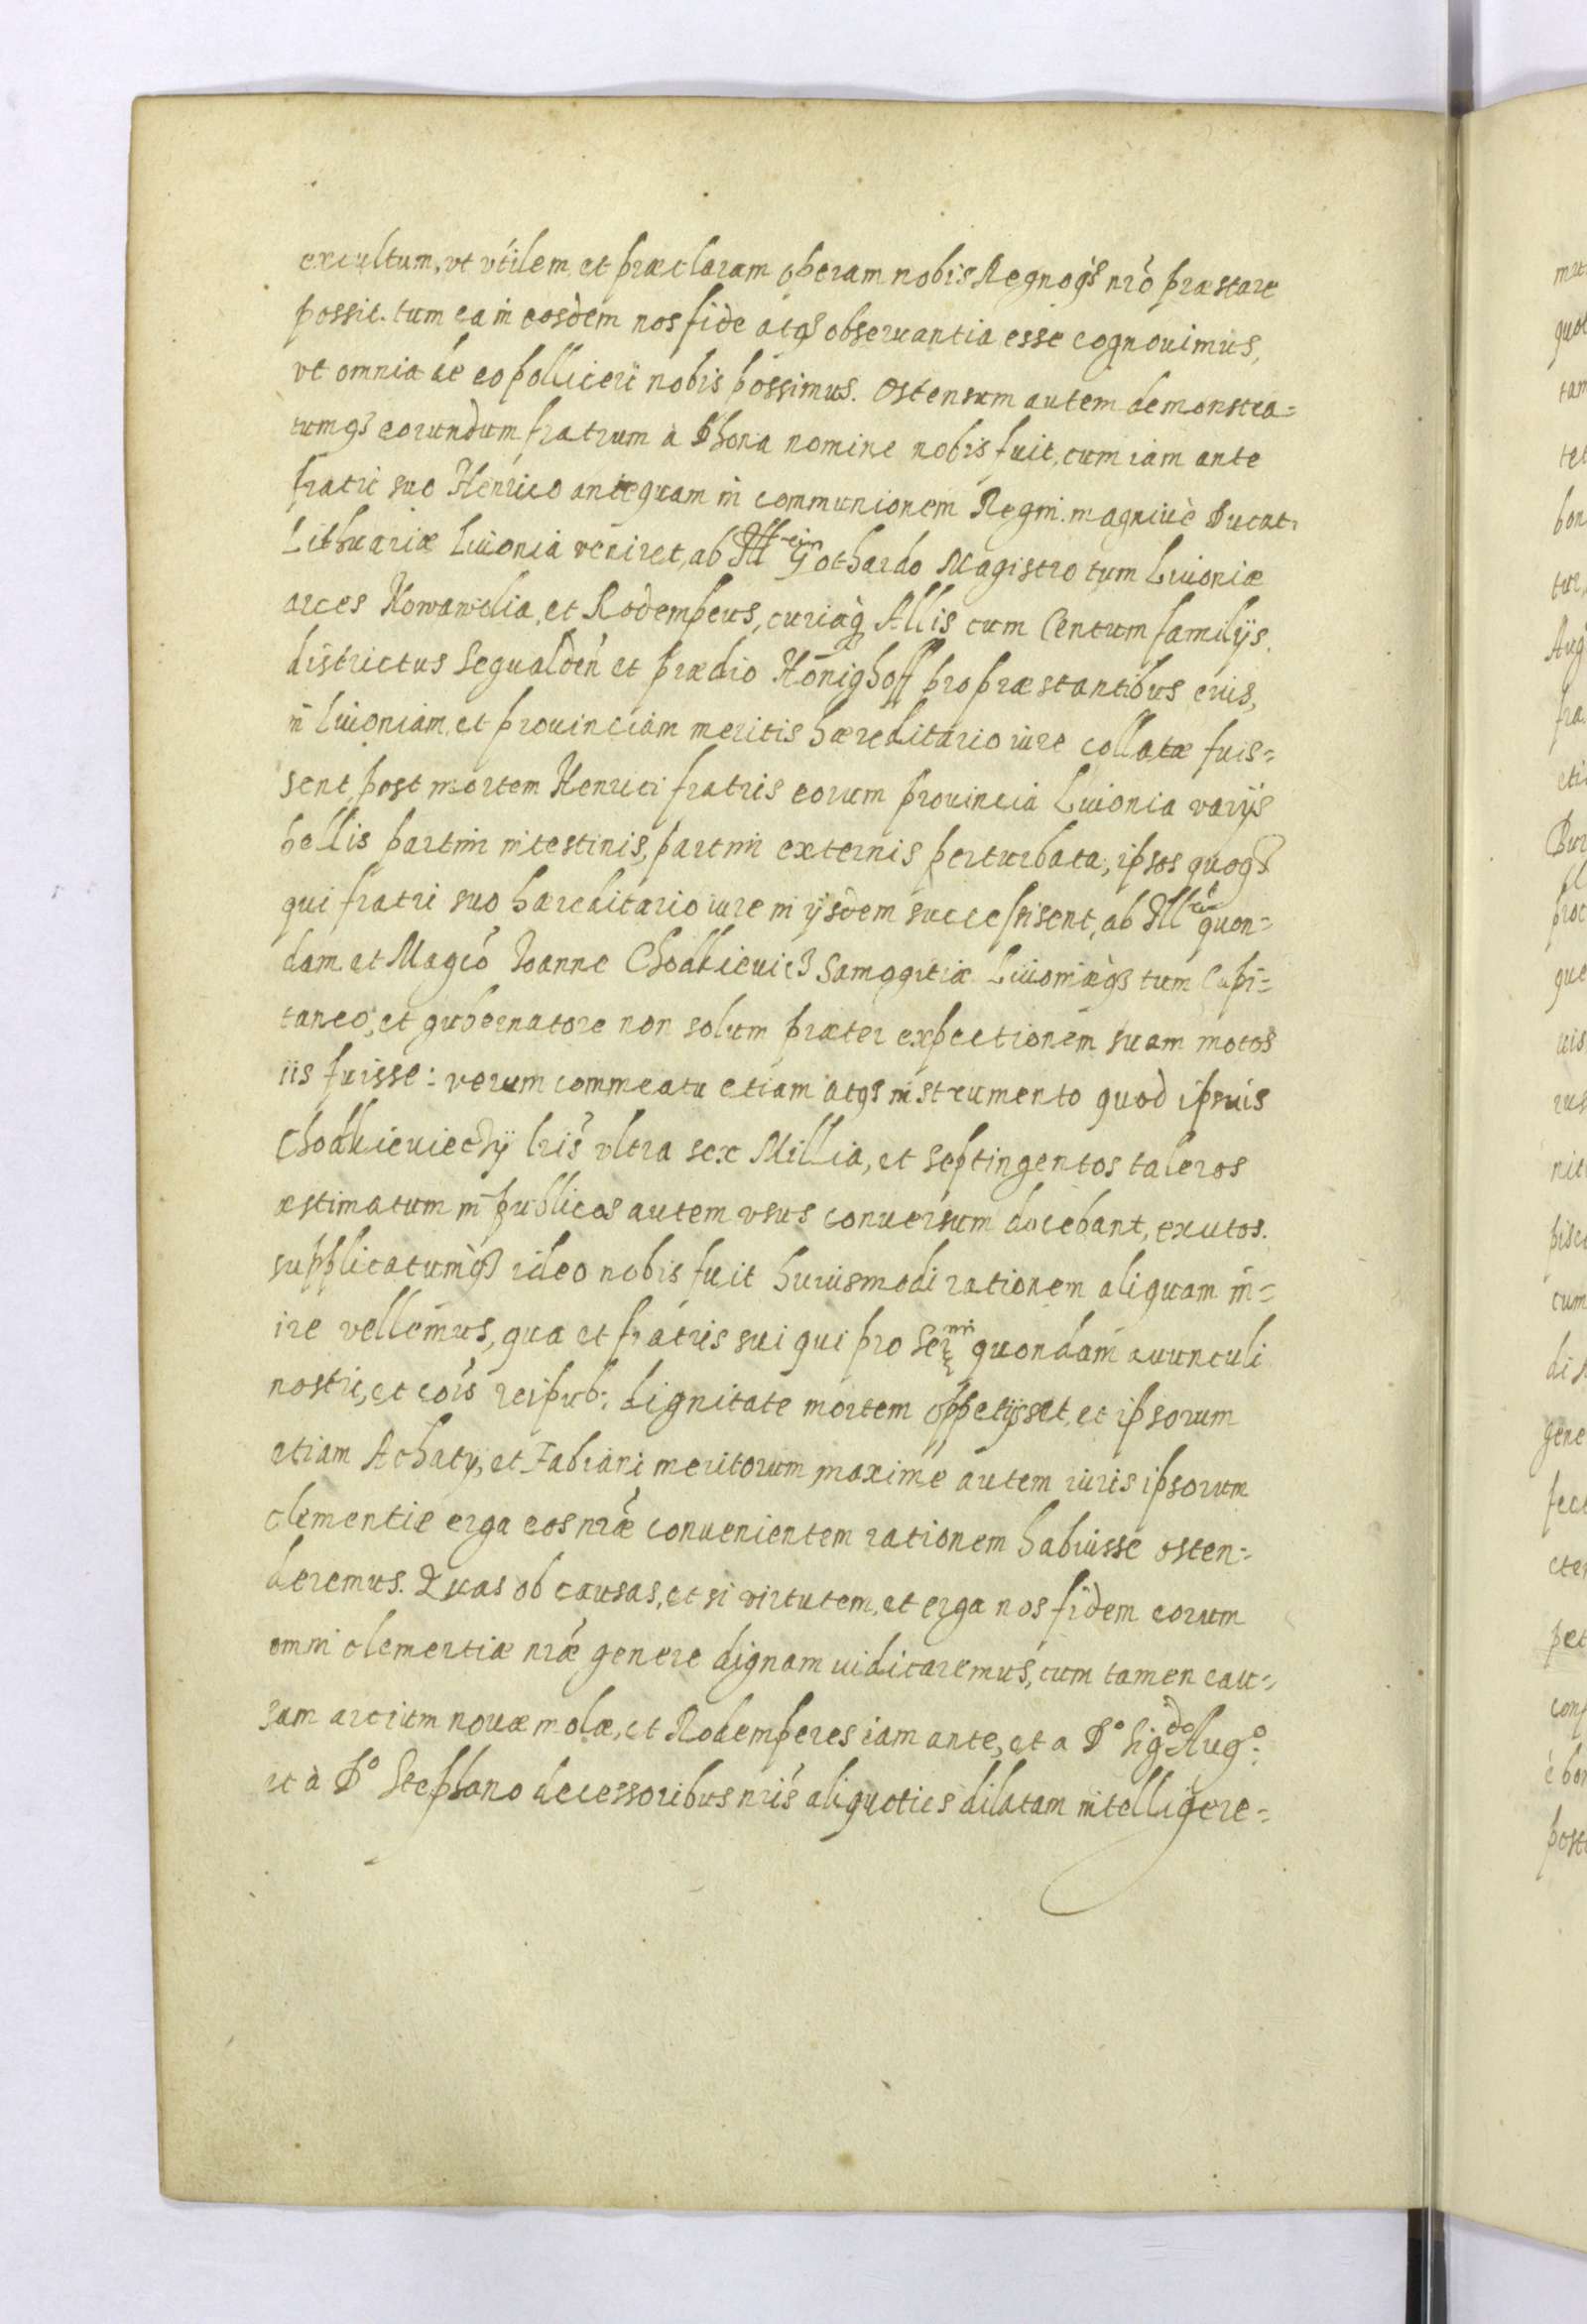 excultum, vt vtilem et præclaram operam nobis Regnoqз nr̃o præstare
possit. tum ea in eosdem nos fide atqз obseruantia esse cognouimus,
vt omnia de eo polliceri nobis possimus. Ostensum autem demonstra=
tumqз eorundum fratrum a Dhona nomine nobis fuit, cum iam ante
fratri suo Henrico antequam in communionem Regni magniuè Ducat,
Lithuaniæ Liuonia veniret, ab Ill Gothardo Magistro tum Liuoniæ
arces Nowamolia, et Rodempeus, curiaq̃ Allis cum Centum familijs,
districtus Segualden et prædio Honighoff pro præstantibus eius,
in Liuoniam, et prouinciam meritis hæreditario iure collatæ fuis=
sent, post mortem Henrici fratris eorum prouincia Liuonia varijs
bellis partim intestinis, partim externis perturbata, ipsos quoqз
qui fratri suo hæreditario iure in ijsdem successissent, ab Ill quon=
dam et Magco Ioanne Chodkieuicз Samogitiæ Liuoniæqз tum Capi=
taneo, et gubernatore non solum præter expectionem suam motos
iis fuisse: verum commeatu etiam atqз instrumento quod ipsuis
Chodkieuieczij lris vltra sex Millia, et septingentos taleros
æstimatum in publicos autem vsus conuersum docebant, exutos.
supplicatumqз ideo nobis fuit huiusmodi rationem aliquam in=
ire vellemus, qua et fratris sui qui pro Ser mi quondam auunculi
nostri, et cois reipub: dignitate mortem oppetijsset, et ipsorum
etiam Achatij, et Fabiani meritorum maxime autem iuris ipsorum
clementiæ erga eos nræ conuenientem rationem habuisse osten=
deremus. Quas ob causas, et si virtutem, et erga nos fidem eorum
omni clementiæ nræ genere dignam iudicaremus, cum tamen cau=
sam arcium nouæ molæ, et Rodemperes iam ante, et a D° Sigdo Aug°:
et à D° Stephano decessoribus nris aliquoties dilatam intelligere=